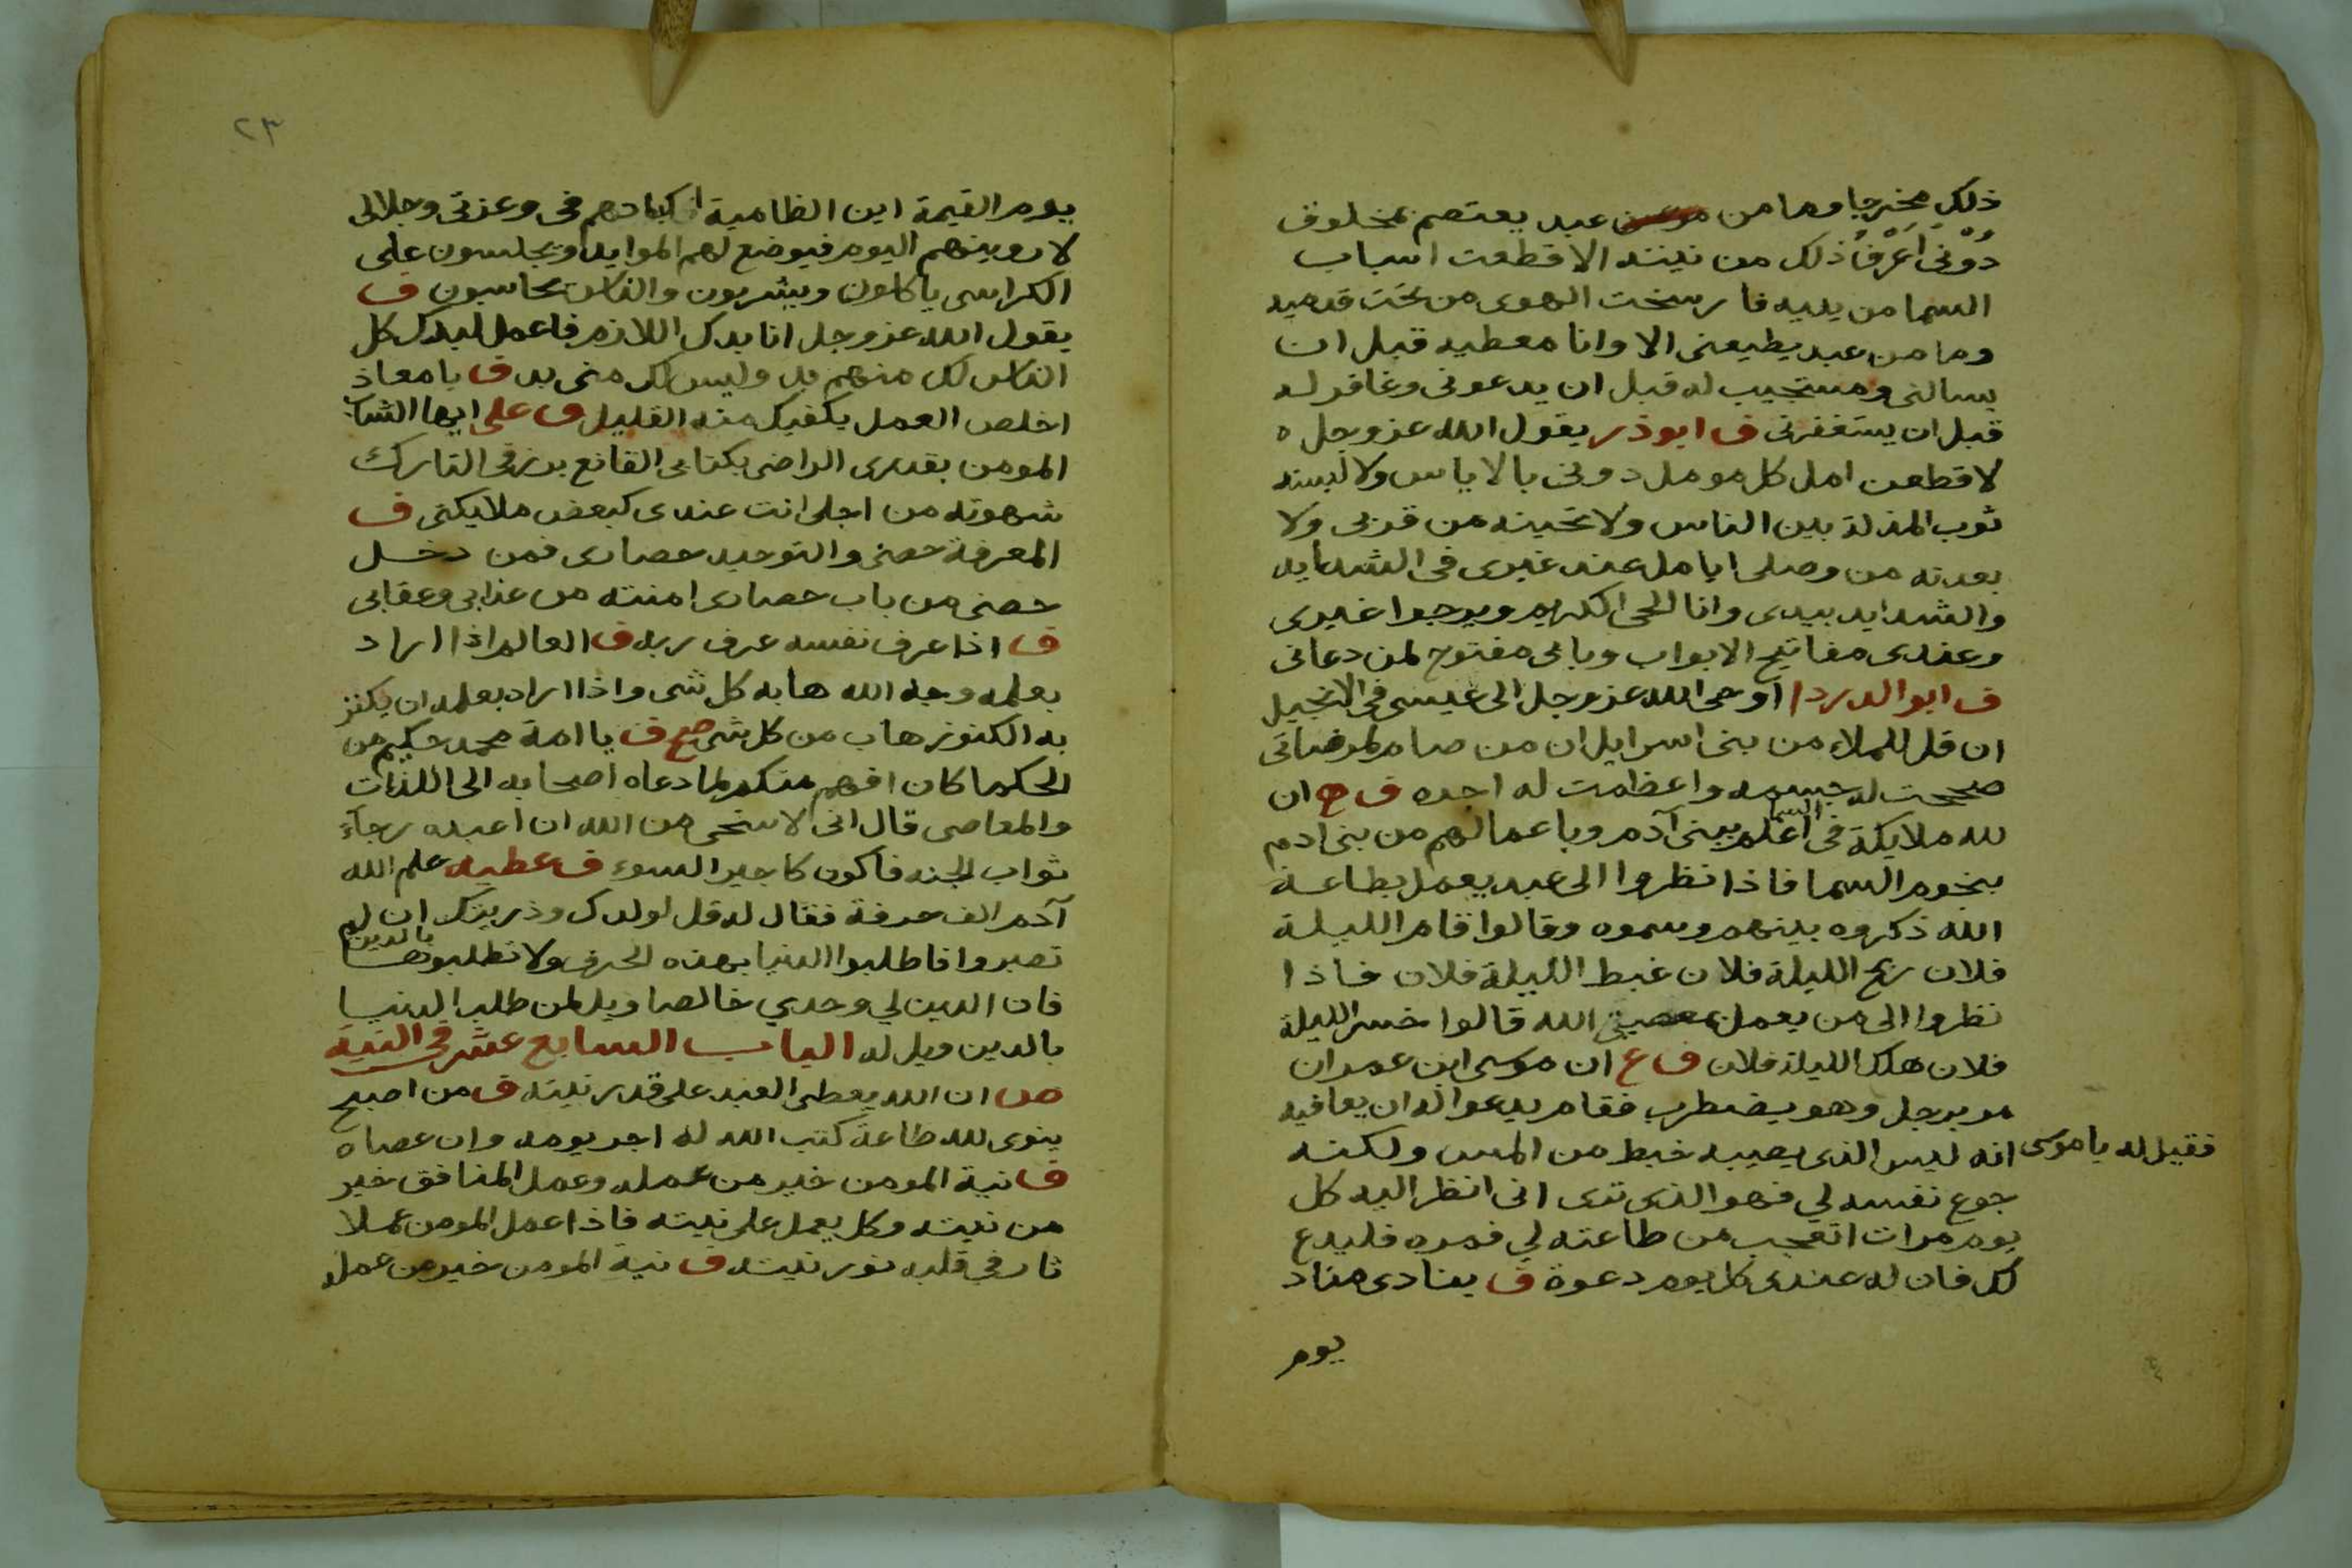 ذلك مخرجا وما من عبد يعتصم بمخلوق
دوني اعرف ذلك من نيته الا قطعت اسباب
السما من يديه فارسخت الهوى من تحت قدميه
وما من عبد يطيعني الا وانا معطيه قبل ان
يسالني ومستجيب له قبل ان يدعوني وغافر له
قبل ان يستغفرني ف ابوذر يقول الله عز وجل ه
لاقطعن امل كل مومل دوني بالاياس ولالبسنه
ثوب المذلة بين الناس ولانحينه من قربي ولا
بعدنه من وصلي ايامل عند غيري في الشدايد
والشدايد بيدي وانا الحي الكريم ويرجوا غيري
وعندي مفاتيح الابواب وبابي مفتوح لمن دعاني
ف ابوا الدردا اوحى الله عز وجل الى عيسى في الانجيل
ان قل للملاء من بني اسرايل ان من صام لمرضاتي
صححت له جسمه واعظمت له اجره ف ح ان
لله ملايكة في السما اعلم ببني آدم وباعمالهم من بني ادم
بنجوم السما فاذا نظروا الى عبد يعمل بطاعة
الله ذكروه بينهم وسموه وقالوا قام الليلة
فلان ربح الليلة فلان غبط الليلة فلان فاذا
نظروا الى من يعمل بمعصية الله قالوا خسر الليلة
فلان هلك الليلة فلان ف ع ان موسى ابن عمران
مر برجل وهو يضطرب فقام يدعوا له ان يعافيه
فقيل له يا موسى انه ليس الذي يصيبه خبط من المس ولكنه
جوع نفسه لي فهو الذي ترى اني انظر اليه كل
يوم مرات اتعجب من طاعته لي فمره فليدع
لك فان له عندي كل يوم دعوة ف ينادى مناد
يوم
٢٣
يوم القيمة اين الظامية اكبادهم في وعزتي وجلالي
لاروينهم اليوم فيوضع لهم الموايد ويجلسون على
الكراسي ياكلون ويشربون والناس يحاسبون ف
يقول الله عز وجل انا بدك اللازم فاعمل لبدك كل
الناس لك منهم بد وليس لك مني بد ف يا معاذ
اخلص العمل يكفيك منه القليل ف على ايها الشاب
المومن بقدري الراضي بكتابي القانع برزقي التارك
شهوته من اجلي انت عندي كبعض ملايكتي ف
المعرفة حصني والتوحيد حصاري فمن دخل
حصني من باب حصاري امنته من عذابي وعقابي
ف اذا عرف نفسه عرف ربه ف العالم اذا اراد
بعلمه وجه الله هابه كل شي واذا اراد بعلمه ان يكنز
به الكنوز هاب من كل شي صح ف يا امة محمد حكيم من
الحكما كان افهم منكم لما دعاه اصحابه الى اللذات
والمعاصي قال اني لاستحي من الله ان اعبده رجآء
ثواب الجنه فاكون كاجير السوء ف عطيه علم الله
آدم الف حرفة فقال له قل لولدك وذريتك ان لم
تصبروا فاطلبوا الدنيا بهذه الحرف ولا تطلبوها بالدين
فان الدين لي وحدي خالصا ويل لمن طلب الدنيا
بالدين ويل له الباب السابع عشر في النية
ص ان الله يعطي العبد على قدر نيته ف من اصبح
ينوي لله طاعة كتب الله له اجر يومه وان عصاه
ف نية المومن خير من عمله وعمل المنافق خير
من نيته وكل يعمل على نيته فاذا عمل المومن عملا
ثار في قلبه نور نيته ف نية المومن خير من عمله